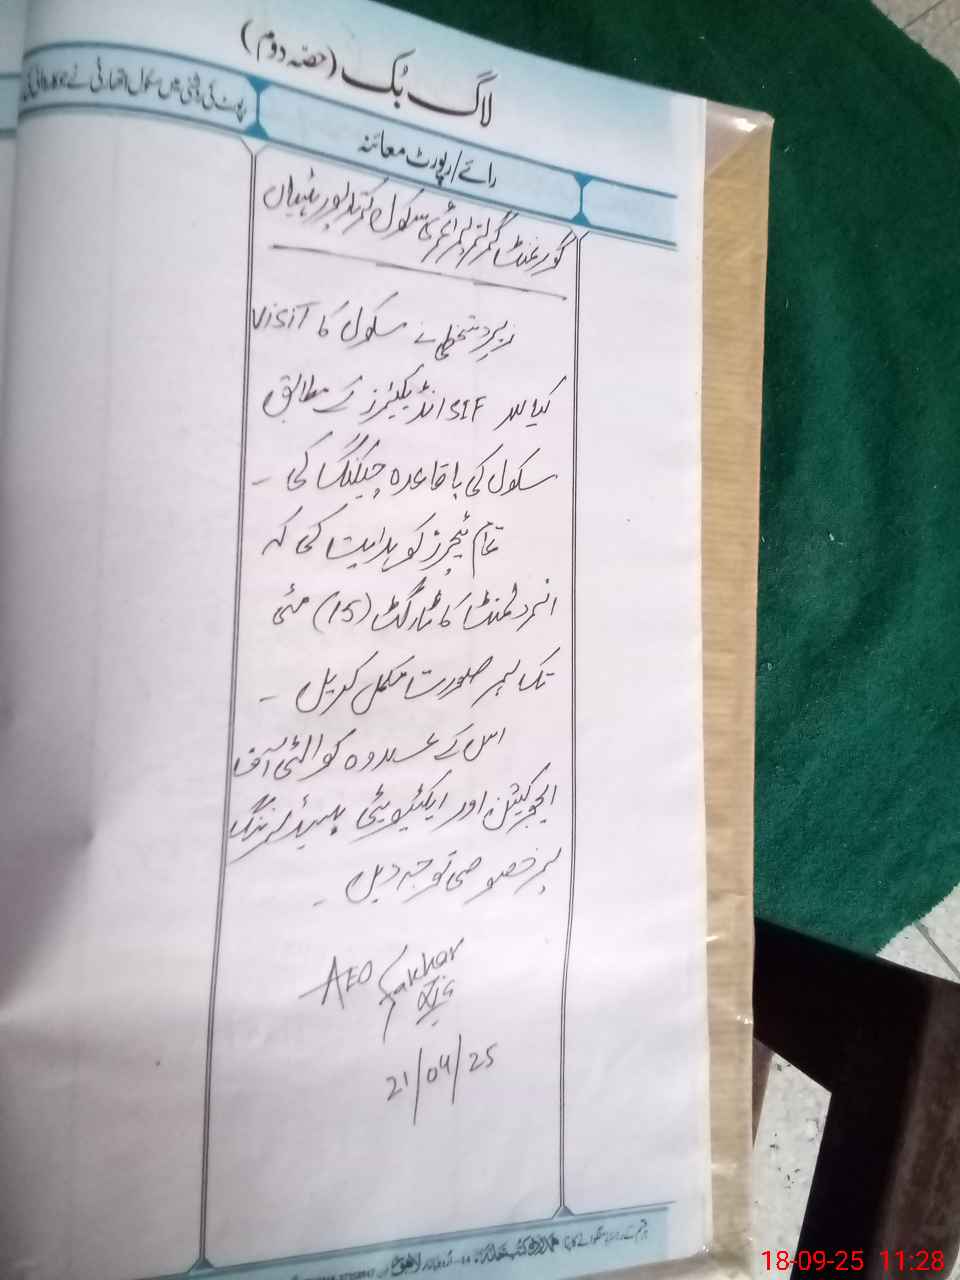 لاگ بُک (حصّہ دوم)
رائے/رپورٹ معائنہ
گورنمنٹ گرلز پرائمری سکول
زیر دستخطی نے سکول کا VISIT
کیا SIF انڈیکیٹرز کے مطابق
سکول کی باقاعدہ چیکنگ کی ۔
تمام ٹیچرز کو ہدایت کی کہ
انرولمنٹ کا ٹارگٹ (15) مئی
تک ہر صورت مکمل کریں ۔
اس کے علاوہ کوالٹی آف
ایجوکیشن اور ایکٹیویٹی بیسڈ لرننگ
پر خصوصی توجہ دیں ۔
AEO Fakhar
21/04/25
18-09-25 11:28